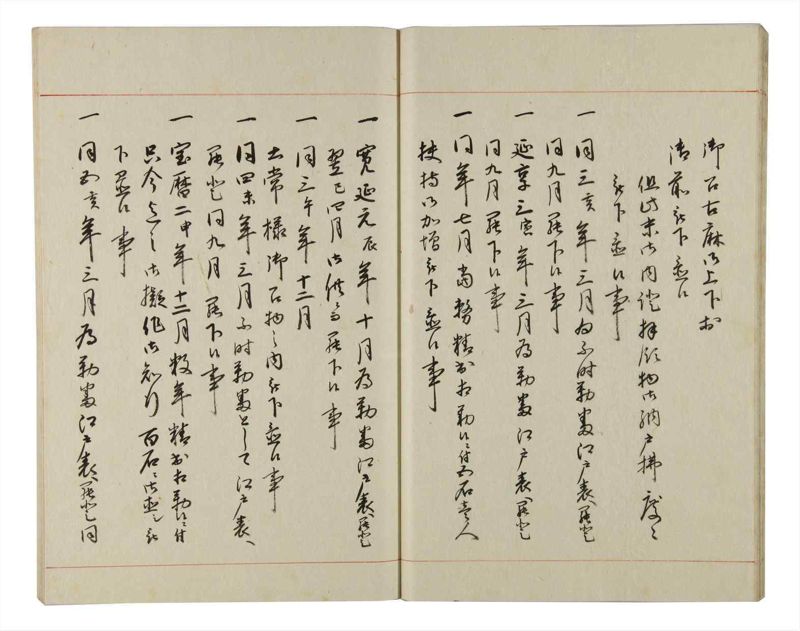 御召古麻御上下於
御前被下置候
但此末御内證拝領物御納戸拂度々
被下置候事
一同三亥年三月為不時勤番江戸表罷登
同九月罷下候事
一延享三寅年三月為勤番江戸表罷登
同九月罷下候事
一同年七月當務精出相勤候ニ付五石壱人
扶持御加増被下置候事
一寛延元辰年十月為勤番江戸表罷登
翌巳四月御供ニ而罷下候事
一同三午年十二月
土常様御召物之内被下置候事
一同四未年三月不時勤番として江戸表
罷登同九月罷下候事
一宝暦二申年十二月数年精出相勤候ニ付
只今迄之御擬作御知行百石ニ御直し被
下置候事
一同五亥年三月為勤番江戸表罷登同